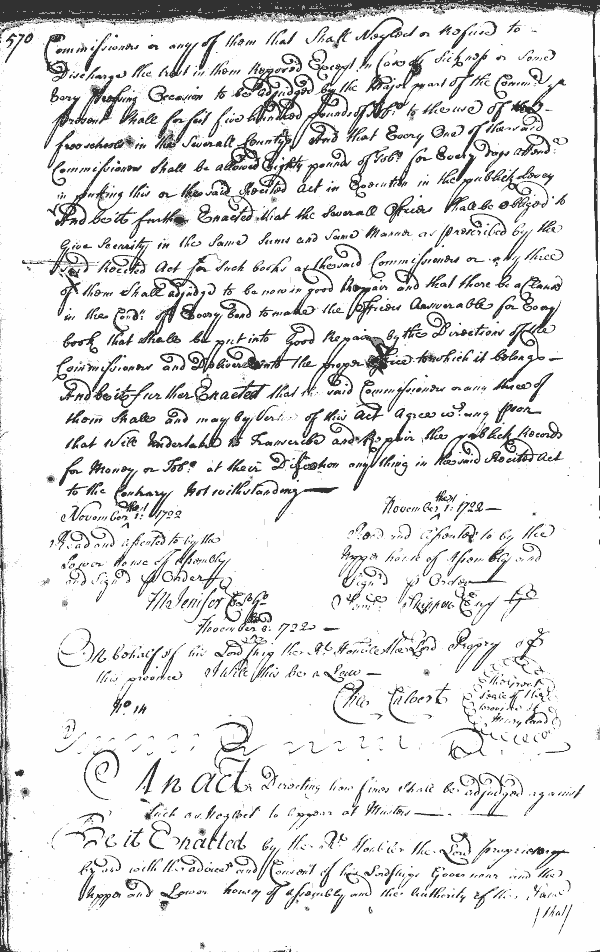 570
Commissioners or any of them that Shall Neglect or Refuse to
Discharge the trust in them Reposed Except in Case of Sickness or Some
Very pressing Occasion to be adjudged by the Major part of the Commrs
present Shall forfeit five hundred pounds of Tobo to the use of the
free schools in the Severall Countys And that Every One of the said
Commissioners Shall be allowed Eighty pounds of Tobo for Every days attend
in putting this or the said Recited Act in Execution in the publick Levey
And be it further Enacted that the Severall Officers Shall be obliged to
Give Security in the Same Sums and Same Manner as prescribed by the
Said Recited Act for Such books as the said Commissioners or any three
of them Shall adjudge to be now in good Repair and that there be a Clause
in the Condn of Every bond to make the Officers Answerable for Every
book that shall be put into Good Repair by the Directions of the
Commissioners and Delivered into the proper Office to which it belongs
And be it further Enacted that the said Commissioners or any three of
them Shall and may by Vertue of this Act Agree with any
that Will Undertake to Transcribe and Repair the publick Records
for Money or Tobo at their Discretion any thing in the said Recited Act
to the Contrary Notwithstanding
November the 1st 1722
Read and assented to by the
Lower house of Assembly
and Sign'd p Order
M Jenifer
November the 1st 1722
Read and assented to by the
Upper house of Assembly and
Sign'd p Order
Saml Skippon
November 1722
On behalf of his Lordship the Rt Honble the Lord Propry of
this province I Will this be a Law
Chas Calvert
The Great
Seale of the
province of
Maryland
No 14
An act Directing how fines Shall be adjudged against
Such as Neglect to appear at Musters
Be it Enacted by the Rt Honble the Lord Proprietary
by and with the advice and Consent of his Lordships Governour and the
Upper and Lower houses of Assembly and the Authority of the Same
that